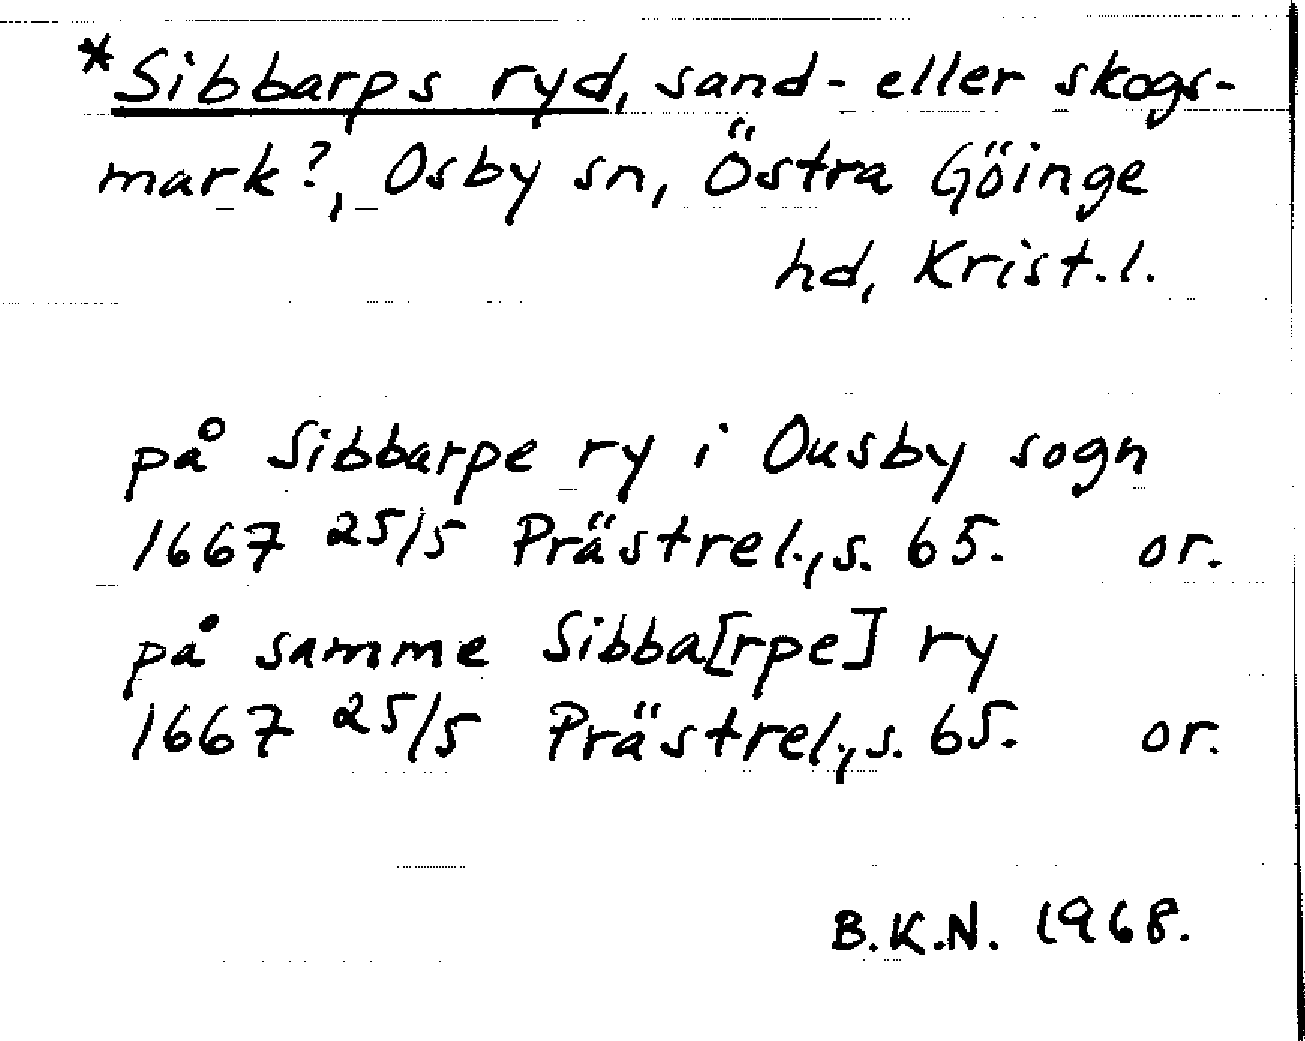 *Sibbarps ryd, sand- eller skogs-
mark?, Osby sn, Östra Göinge
hd, Krist.l.
på Sibbarpe ry i Ousby sogn
1667 25/5 Prästrel., s. 65. or.
på samme Sibba[rpe] ry
1667 25/5 Prästrel., s. 65. or.
B.K.N. 1968.